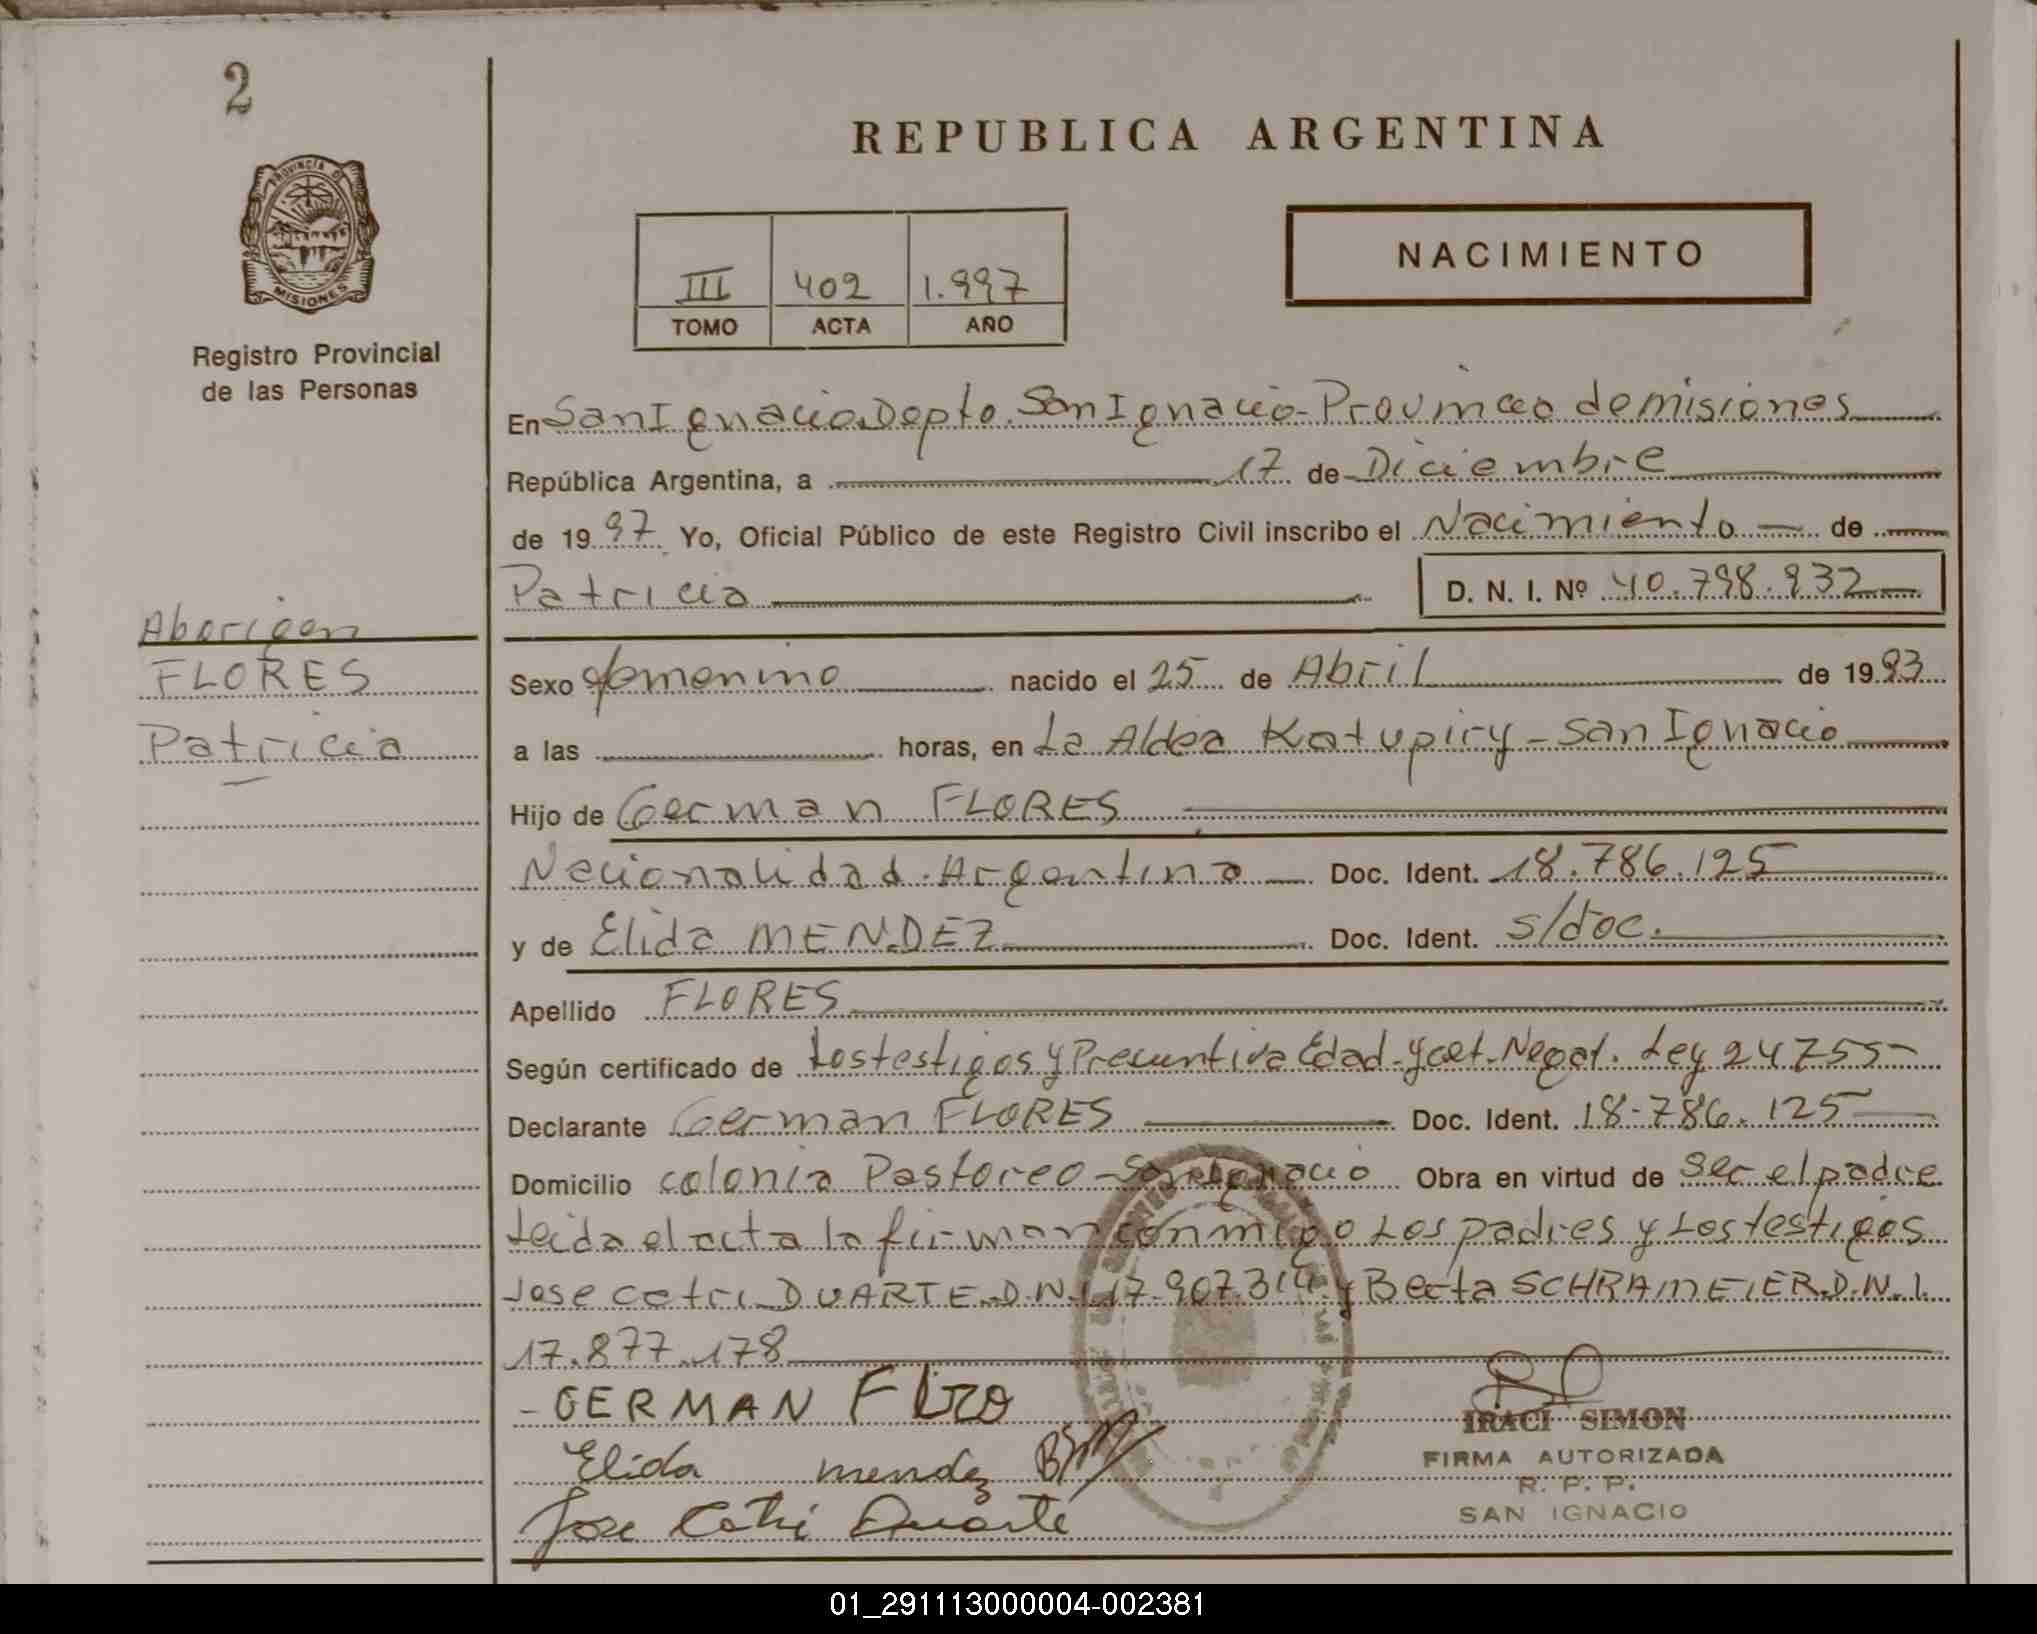 2
PROVINCIA DE
MISIONES
Registro Provincial
de las Personas
REPUBLICA ARGENTINA
III 402 1.997
TOMO ACTA AÑO
NACIMIENTO
En San Ignacio Depto. San Ignacio - Provincia de misiones
República Argentina, a 17 de Diciembre
de 1997 Yo, Oficial Público de este Registro Civil inscribo el Nacimiento de
Patricia D. N. I. Nº 40.798.932
Aborigen
FLORES
Patricia
Sexo femenino nacido el 25 de Abril de 1993
a las horas, en La Aldea Katupiry - San Ignacio
Hijo de German FLORES
Nacionalidad Argentina Doc. Ident. 18.786.125
y de Elida MENDEZ Doc. Ident. s/doc.
Apellido FLORES
Según certificado de Los testigos y Presuntiva Edad - y cet. Negat. Ley 24755
Declarante German FLORES Doc. Ident. 18-786.125
Domicilio colonia Pastoreo - San Ignacio Obra en virtud de ser el padre
Leida el acta la firman conmigo Los padres y Los testigos
Jose catri DUARTE D.N.I. 17.907.314 y Berta SCHRAMEIER D.N.I.
17.877.178
- GERMAN
Elida mendez
Jose Catri Duarte
IRACI SIMON
FIRMA AUTORIZADA
R. P. P.
SAN IGNACIO
01_291113000004-002381